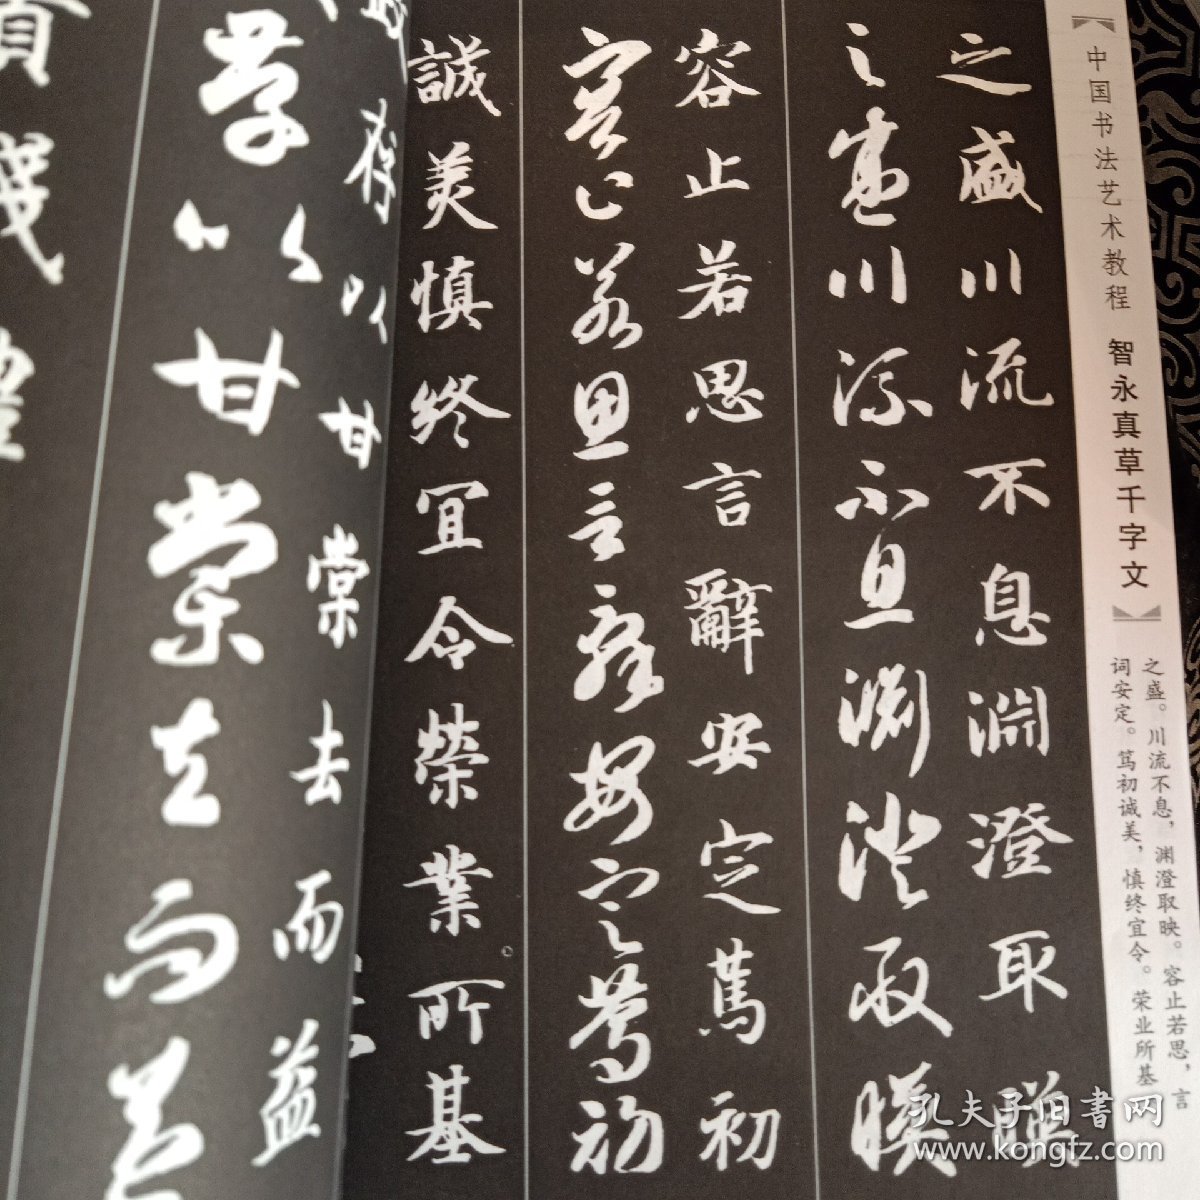 中国书法艺术教程
智永真草千字文
之盛。川流不息，渊澄取映。容止若思，言
词安定。笃初诚美，慎终宜令。荣业所基
之盛川流不息淵澄取暎
之盛川流不息淵澄取暎
容止若思言辭安定篤初
容止若思言辭安定篤初
誠美慎終宜令榮業所基
政存以甘棠去而益
學以甘棠去而益
孔夫子旧书网
www.kongfz.com